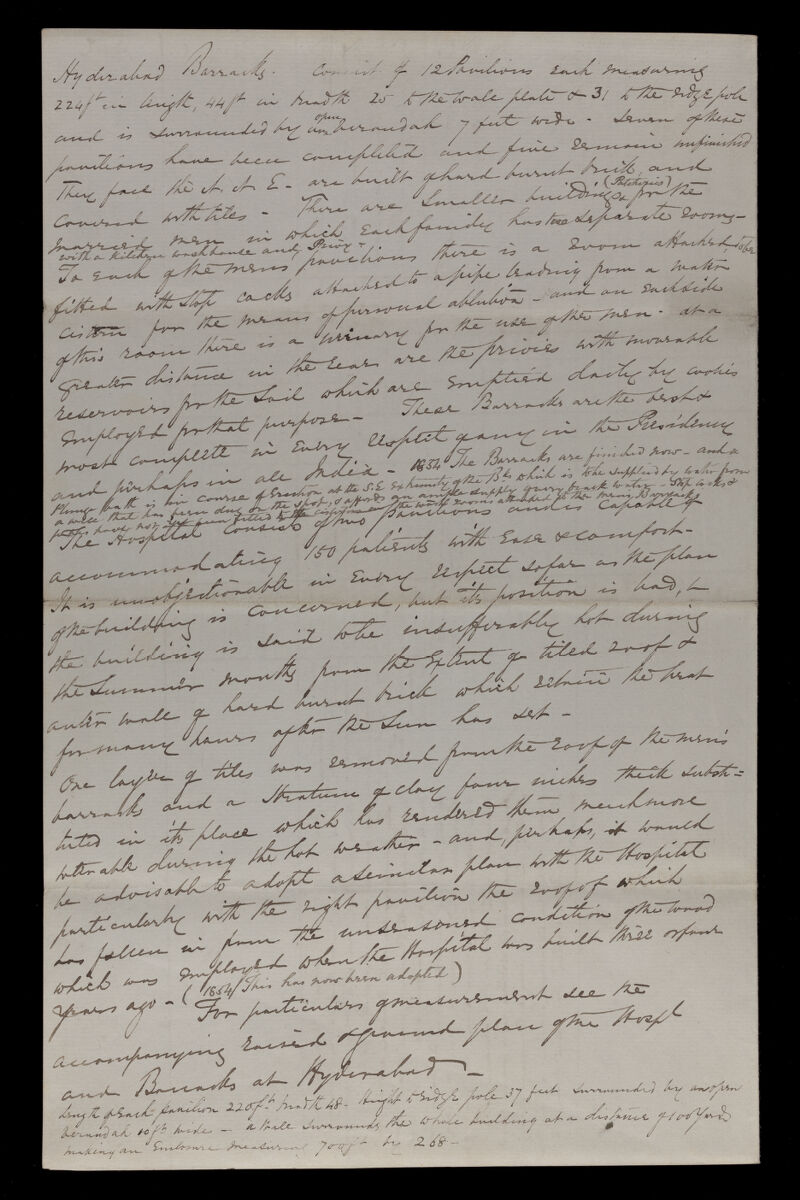 Hyderabad Barracks. Consist of 12 Pavilions each measuring
224ft in length, 44ft in breadth 25 to the wall plate & 31 to the ridge pole
and is surrounded by an open verandah 7 feet wide - Seven of these
pavilions have been completed and five remain unfinished
They face the N. N. E. - are built of hard burnt brick, and
covered with tiles - There are smaller buildings (Patcherries) for the
married men in which each family has two separate rooms -
with a kitchen washhouse and Privy -
To each of the mens pavilions there is a room attached, to be
fitted with stop cocks attached to a pipe leading from a water
cistern for the means of personal ablution - and on each side
of this room there is a urinary for the use of the men - at a
greater distance in the rear are the privies with moveable
reservoirs for the soil which are emptied daily by coolies
employed for that purpose - These Barracks are the best &
most complete in every respect of any in the Presidency
and perhaps in all India - 1854 The Barracks are finished now - and a
Plunge bath is in course of erection at the S.E extremity of the Bks which is to be supplied by water from
a well that has been dug on the spot, & affords an ample supply of very brack water - Stop cocks &
have not yet been fitted to the wash rooms attached to the mens Barracks
The Hospital consists of two pavilions and is capable of
accommodating 150 patients with ease & comfort -
It is unobjectionable in every respect so far as the plan
of the building is concerned, but its position is bad, &
the building is said to be insufferably hot during
the summer months from the extent of tiled roof &
outer wall of hard burnt brick which retain the heat
for many hours after the sun has set -
One layer of tiles was removed from the roof of the men's
barracks and a stratum of clay four inches thick substi=
tuted in its place which has rendered them much more
tolerable during the hot weather - and, perhaps, it would
be advisable to adopt a similar plan with the Hospital
particularly with the right pavilion the roof of which
has fallen in from the unseasoned condition of the wood
which was employed when the Hospital was built three or four
years ago - (1854 This has now been adopted)
For particulars of measurement see the
accompanying raised & ground plan of the Hospl
and Barracks at Hyderabad -
Length of each pavilion 220ft breadth 48 - Height to ridge pole 37 feet surrounded by an open
verandah 10ft wide - a wall surrounds the whole building at a distance of 100 yards
making an enclosure measuring 700ft by 268 -